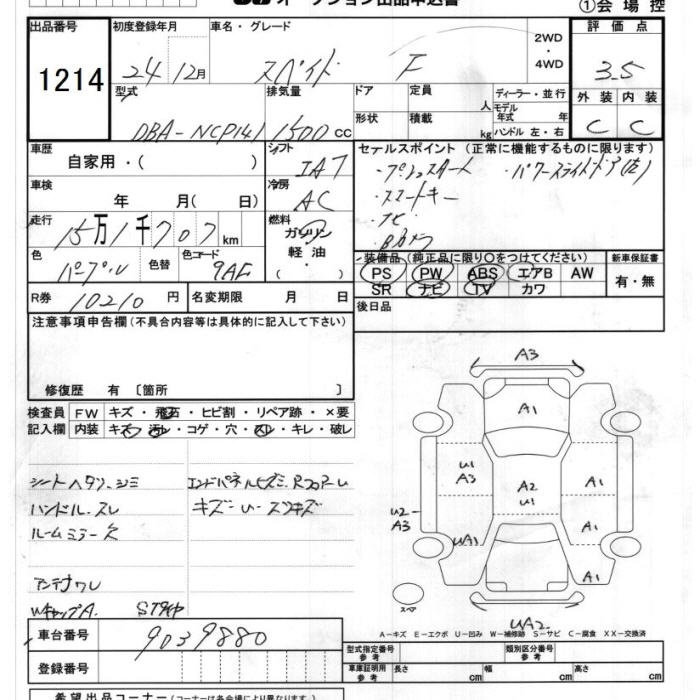 オークション出品申込書
①会場控
出品番号 初度登録年月 車名・グレード 2WD・4WD 評価点
1214 24 12月 スペイド F 3.5
型式 排気量 ドア 定員 人 ディーラー・並行 外装 内装
DBA-NCP141 1500cc 形状 積載 kg モデル年式 年 ハンドル 左・右 C C
車歴 シフト セールスポイント (正常に機能するものに限ります)
自家用・( ) IAT ・プッシュスタート ・パワースライドドア(左)
車検 冷房 ・スマートキー
年 月( 日) AC ・ナビ
走行 燃料 ・Bカメラ
15万1千707km ガソリン
色 色替 色コード 軽油・ 装備品(純正品に限り○をつけてください) 新車保証書
パープル 9AE PS PW ABS エアB AW 有・無
R券 10210円 名変期限 月 日 SR ナビ TV カワ
後日品
注意事項申告欄(不具合内容等は具体的に記入して下さい)
修復歴 有 〔箇所 〕
検査員 FW キズ・飛石・ヒビ割・リペア跡・×要
記入欄 内装 キズ・汚レ・コゲ・穴・スレ・キレ・破レ
A3
A1
シートヘタリ、シミ エンドパネルヒズミ、Rフロアーu u1 A3 A2 u1 A1
ハンドルスレ キズーu-スリキズ u2-A3 A1
ルームミラー欠 uA1
アンテナワレ A1
WキャップA. Sタイヤ スペア
uA2
A-キズ E-エクボ U-凹み W-補修跡 S-サビ C-腐食 XX-交換済
車台番号 9039880 型式指定番号 参考 類別区分番号 参考
登録番号 車庫証明用 参考 長さ cm 幅 cm 高さ cm
希望出品コーナー(コーナーは各会場により異なります)